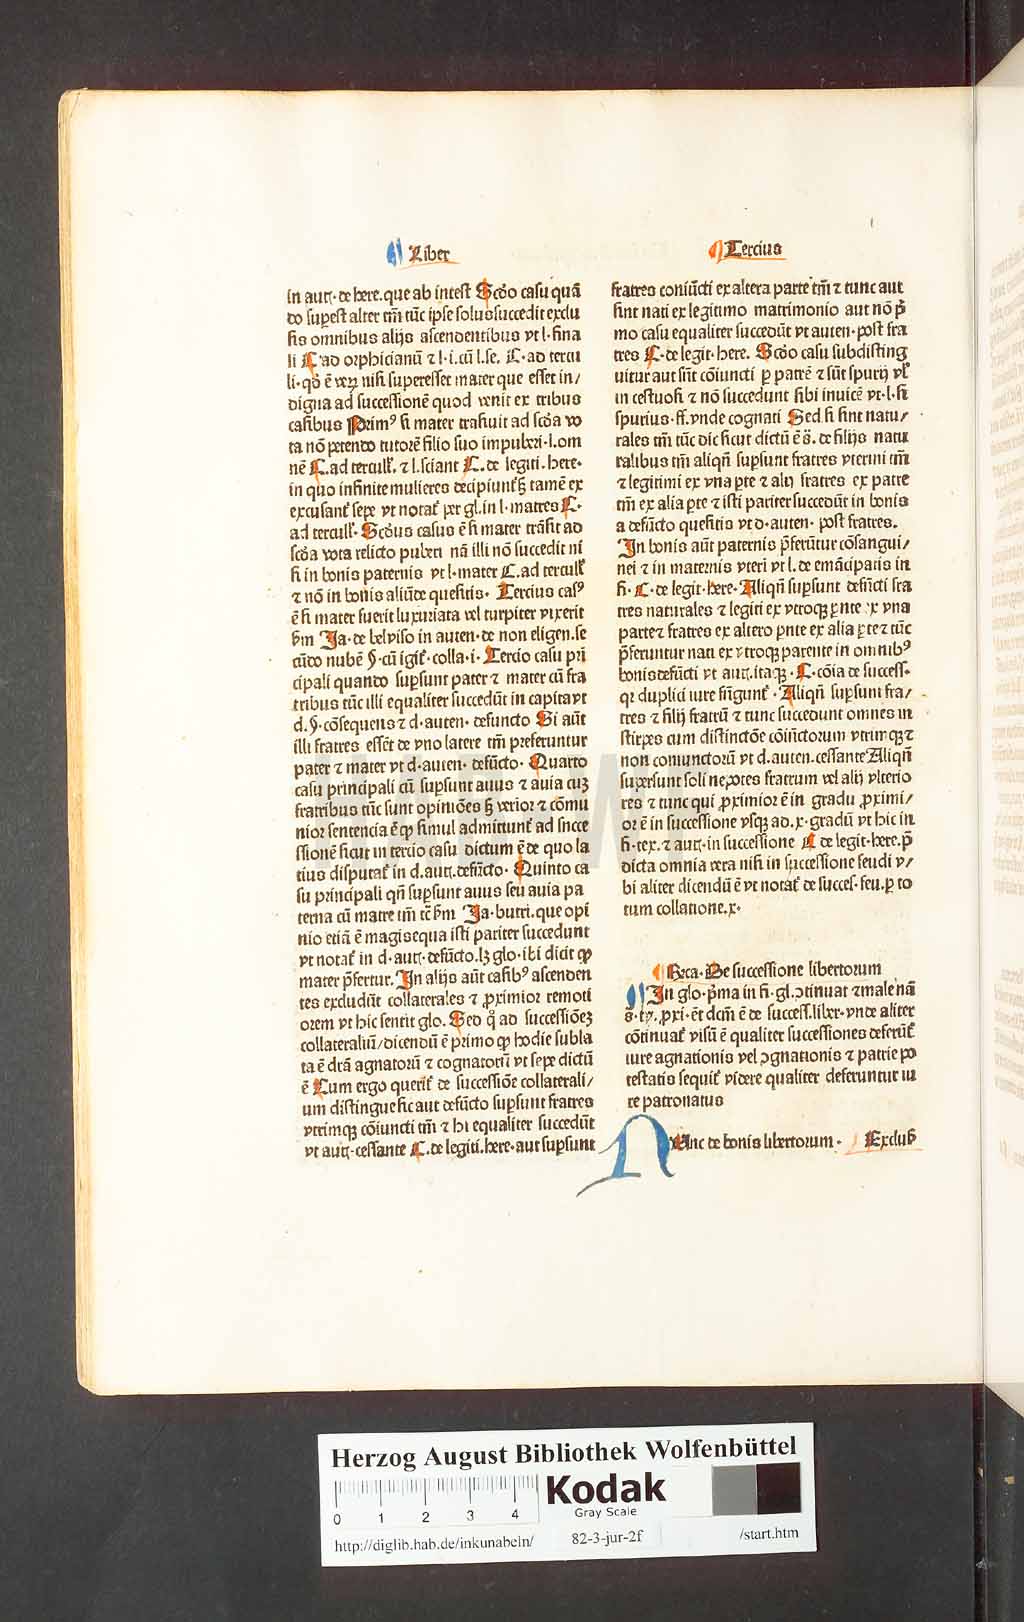 Liber
Tercius
in autꝭ. de here. que ab intest Scdo casu quā
do suꝑest alter tm̄ tūc ipse solus succedit exclu
sis omnibus alijs ascendentibus vt l. fina
li C ad orphicianū ⁊ l. i. cū l. se. C. ad tercu
li. qđ ē veꝝ nisi superesset mater que esset in/
digna ad successionē quod venit ex tribus
casibus Primꝰ si mater trāsiuit ad scđa vo
ta nō petendo tutorē filio suo impuberi. l. om
nē C. ad tercull. ⁊ l. sciant C. de legiti. here.
in quo infinite mulieres decipiunt᷑ ꝫ tamē ex
excusant᷑ sepe vt notat᷑ per gl. in l. matres C.
ad tercull. Scđus casus ē si mater trāsit ad
scđa vota relicto puberi nā illi nō succedit ni
si in bonis paternis vt l. mater C. ad tercull
⁊ nō in bonis aliūde quesitis. Tercius casꝰ
ē si mater fuerit luxuriata vel turpiter vixerit
ẜm Ja. de beluiso in auten. de non eligen. se
cūdo nubē §. cū igit᷑. colla. i. Tercio casu pri
cipali quando suꝑsunt pater ⁊ mater cū fra
tribus tūc illi equaliter succedūt in capita vt
d. §. cōsequens ⁊ d. auten. defuncto Si aūt
illi fratres essēt de vno latere tm̄ preferuntur
pater ⁊ mater vt d. auten. defūcto. Quarto
casu principali cū suꝑsunt auus ⁊ auia cuꝫ
fratribus tūc sunt opiniōes ꝫ verior ⁊ cōmu
nior sentencia ē ꝙ simul admittunt᷑ ad succe
ssionē sicut in tercio casu dictum ē de quo la
tius disputat᷑ in d. autꝭ. defūcto. Quinto ca
su principali qn̄ suꝑsunt auus seu auia pa
terna cū matre tm̄ tc̄ ẜm Ja. butri. que opi
nio etiā ē magis equa isti pariter succedunt
vt notat᷑ in d. autꝭ. defūcto. lꝫ glo. ibi dicit ꝙ
mater p̄fertur. In alijs aūt casibꝰ ascenden
tes excludūt collaterales ⁊ ꝓximior remoti
orem vt hic sentit glo. Sed qꝰ ad successiōeꝫ
collateraliū/ dicendū ē primo ꝙ hodie subla
ta ē drā agnatorū ⁊ cognatorū vt sepe dictū
ē Cum ergo querit᷑ de successiōe collaterali/
um distingue sic aut defūcto suꝑsunt fratres
vtrimqꝫ cōiuncti tm̄ ⁊ hi equaliter succedūt
vt autꝭ. cessante C. de legiti. here. aut suꝑsunt
fratres coniūcti ex altera parte tm̄ ⁊ tunc aut
sint nati ex legitimo matrimonio aut nō p̄
mo casu equaliter succedūt vt auten. post fra
tres C. de legit. here. Scđo casu subdisting
uitur aut sūt cōiuncti ꝑ patrē ⁊ sūt spurij vł
in cestuosi ⁊ nō succedunt sibi inuicē vt. l. si
spurius. ff. vnde cognati Sed si sint natu/
rales tm̄ tūc dic sicut dictū ē s̄. de filijs natu
ralibus tm̄ aliqn̄ supsunt fratres vterini tm̄
⁊ legitimi ex vna ꝑte ⁊ alij fratres ex patre
tm̄ ex alia ꝑte ⁊ isti pariter succedūt in bonis
a defūcto quesitis vt d. auten. post fratres.
In bonis aūt paternis p̄ferūtur cōsangui/
nei ⁊ in maternis vteri vt l. de emācipatis in
fi. C. de legit. here. Aliqn̄ supsunt defūcti fra
tres naturales ⁊ legiti ex vtroqꝫ ꝑnte ex vna
parte ⁊ fratres ex altero ꝑnte ex alia ꝑte ⁊ tūc
p̄feruntur nati ex vtroqꝫ parente in omnibꝰ
bonis defūcti vt autꝭ. itaqꝫ. C. cōia de success.
qꝛ duplici iure fūgunt᷑. Aliqn̄ supsunt fra/
tres ⁊ filij fratrū ⁊ tunc succedunt omnes in
stirpes cum distinctōe cōiūctorum vtrimqꝫ ⁊
non coniunctorū vt d. auten. cessante Aliqn̄
supersunt soli nepotes fratrum vel alij vlterio
res ⁊ tunc qui ꝓximior ē in gradu ꝓximi/
or ē in successione vsqꝫ ad. x. gradū vt hic in
fi. tex. ⁊ autꝭ. in successione C de legit. here. p̄
dicta omnia vera nisi in successione feudi v/
bi aliter dicendū ē vt notat᷑ de succes. feu. ꝑ to
tum collatione. x.
Brca. De successione libertorum
In glo. p̄ma in fi. gl. ↄtinuat ⁊ male nā
s̄. ti. ꝓxi. ēt dcm̄ ē de success. liber. vnde aliter
cōtinuat᷑ visū ē qualiter successiones deferūt᷑
iure agnationis vel ↄgnationis ⁊ patrie po
testatis sequit᷑ videre qualiter deferuntur iu
re patronatus
NUnc de bonis libertorum. Exclus̄
HAB WF
Herzog August Bibliothek Wolfenbüttel
0 1 2 3 4
Kodak
Gray Scale
http://diglib.hab.de/inkunabeln/ 82-3-jur-2f /start.htm